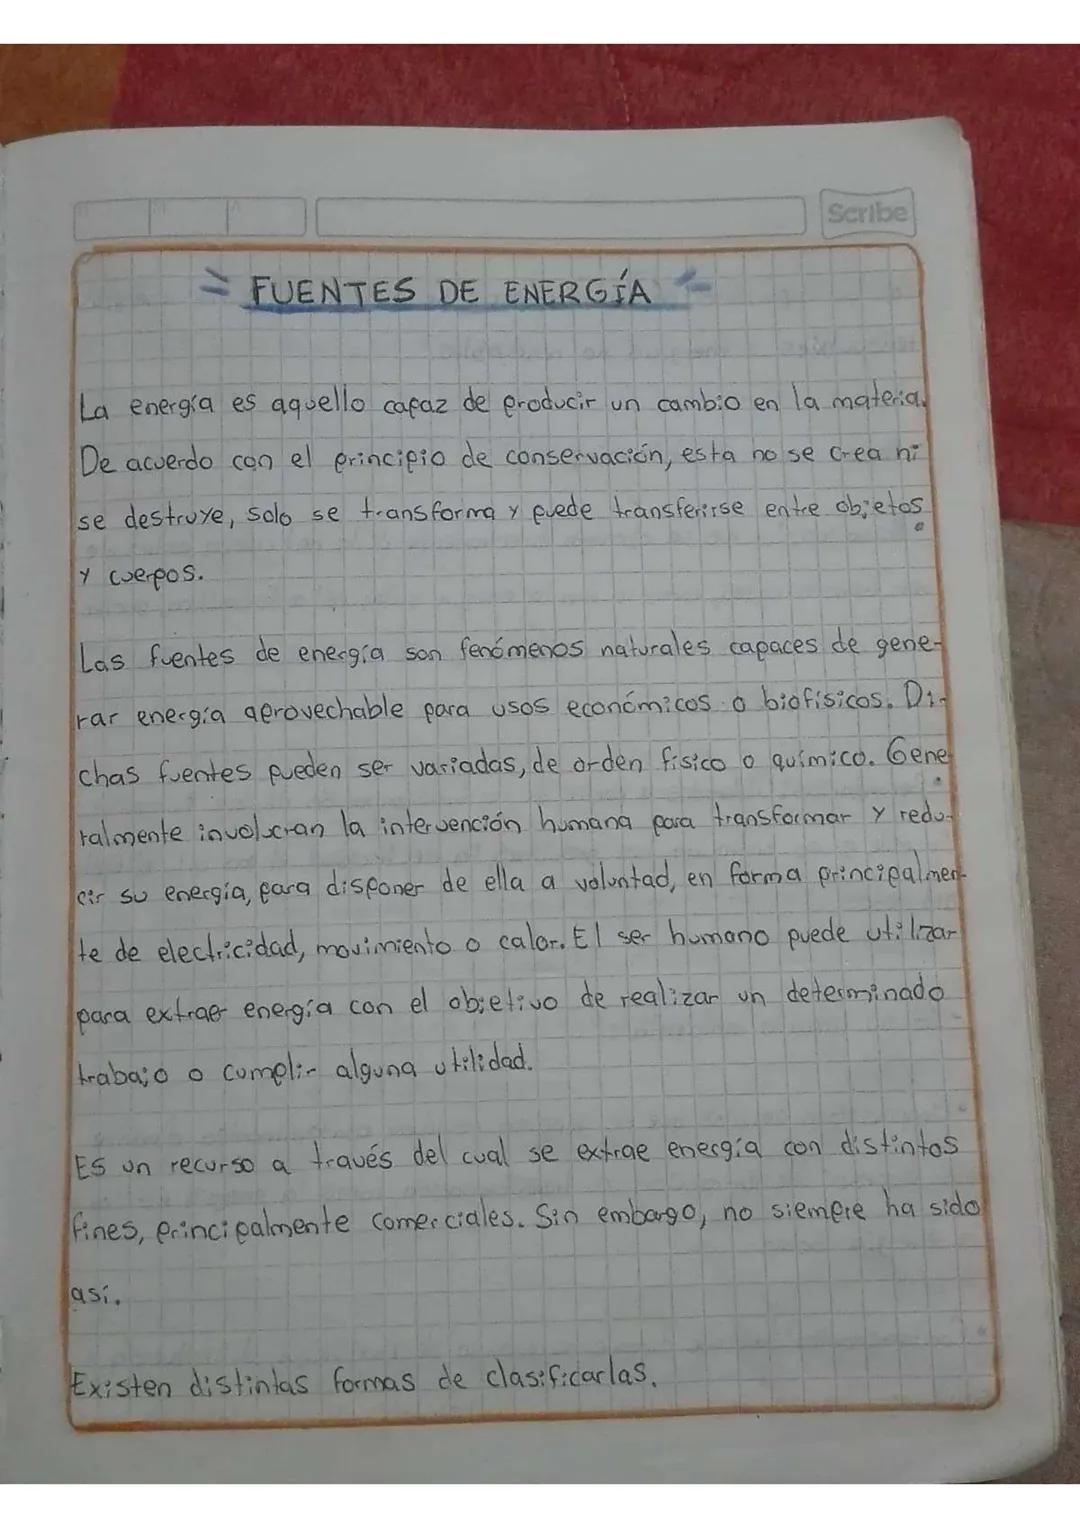 Scribe
FUENTES DE ENERGÍA
La energía es aquello capaz de producir un cambio en la materia.
De acuerdo con el principio de conservación, esta no se crea ni
se destruye, solo se transforma y puede transferirse entre objetos
y cuerpos.
Las fuentes de energía son fenómenos naturales capaces de gene-
rar energía aprovechable para usos económicos o biofísicos. Di-
chas fuentes pueden ser variadas, de orden físico o químico. Gene-
ralmente involucran la intervención humana para transformar y redu-
cir su energía, para disponer de ella a voluntad, en forma principalmen-
te de electricidad, movimiento o calor. El ser humano puede utilizar
para extraer energía con el objetivo de realizar un determinado
trabajo o cumplir alguna utilidad.
Es un recurso a través del cual se extrae energía con distintos
fines, principalmente comerciales. Sin embargo, no siempre ha sido
así.
Existen distintas formas de clasificarlas.